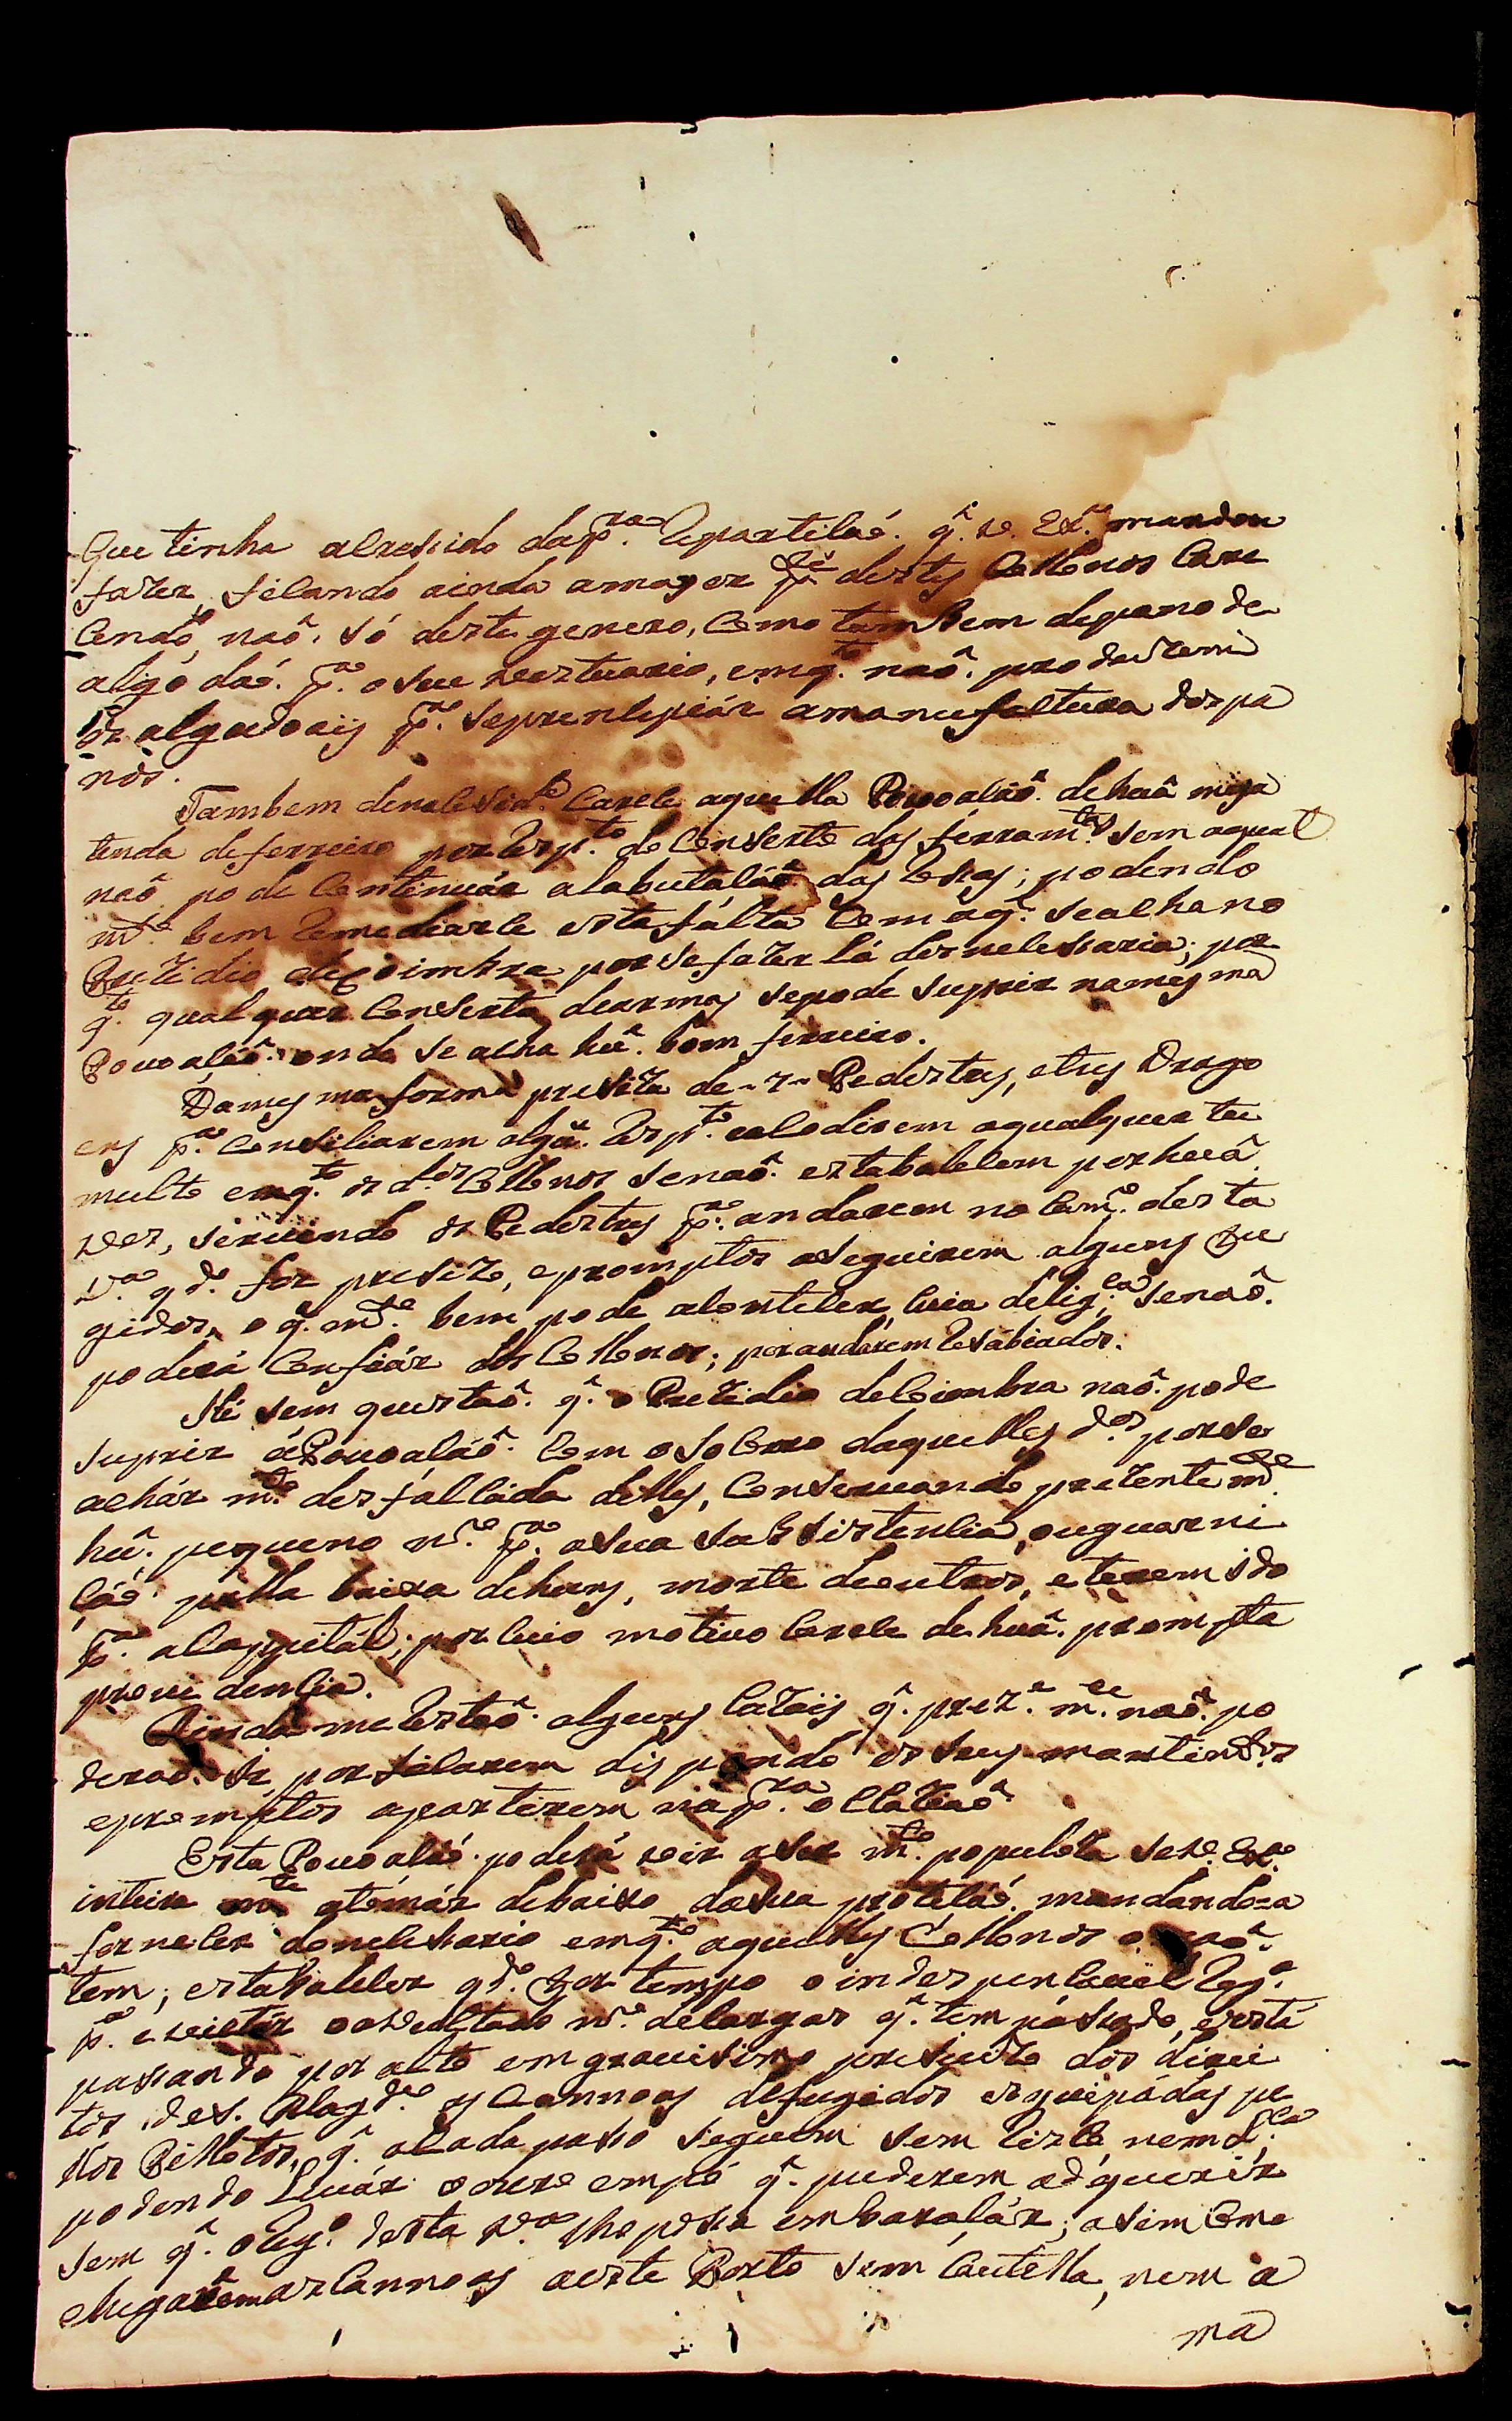 que tinha acrescido da pra. Repartição. q̂. V. Exa. mandou
fazer, ficando ainda a mayor pte. destes Collonos Care
cendo, naô. só deste genero, Como tambem de pano de
algódaô. pa. o seu vestuario, emqto. naô. produzem
os algudoais pa. se prencipiár a manufactura dos pa
nos.
Tambem de necesside. Carece aquella Povoacaô. de huâ ma
tenda de ferreiro por Respto. do Conserto das ferramtas. sem a qual
naô pode Continuár a labutacáô das Rosas; podendo
mto. bem Remediarce esta fálta Com a q̂. se acha no
Prezidio de Coimbra por se fazer lá desnecesaria; por
qto. qualquer Conserto de armas se pode suprir na mesma
Povoacaô. onde se acha hû. bom ferreiro.
Da mesma forma presiza de - 7 - Pedestres, e tres Drago
ens pa. Consiliarem algû. Respto. e acodirem a qualquer tu
multo emqto. os dos. Collonos se naô. estabalecem por huâ
vez, servindo os Pedestres pa. andarem no Camo. desta
Va. qdo. for presizo, e promptos a seguirem alguns fu
gidos, o q. mto. bem pode acontecer, cuia deliga. se naô.
poderá Confiár dos Collonos; por andarem Resabiados.
Hé sem questaô. q̂. o Prezidio de Coimbra naô. pode
suprir á Povoacáô. Com o soCorro daquelles dos. por se
achár mto. desfalcáda delles, Conservando prezenteme.
hû. pequeno no. pa. a sua subsistencia, ou guarni
çáô pella baixa de huns, morte de outros, e terem ido
pa. a Capital; por cuio motivo Carece de huâ. prompta
providencia.
Ainda me Restaô. alguns Cazais q̂. preze. me. naô. po
deraô. ir por ficarem dispondo os seus mantimtos
e promptos a partirem na pra. ocaziaô.
Esta Povoacáô. poderá vir a ser mto. populoza se V. Exa.
inteira mte a tomár debaixo da sua proteçáô. mandando-a
fornecer do necesario emqto. aquelles Collonos o naô.
tem; estabalecer qdo. for tempo o indespençavel Rego.
pa. evitar o avultado no. de largas q̂. tem pásado, e está
pasando por alto em gravisimo prejuizo dos direi
tos de S. Magde. as Cannoas de fugidos esquipádas pe
llos Pillotos, q̂. a Cada paso seguem sem Rizco, nem Lca.
podendo Levár o ouro em pó q̂. puderem adequerir
sem q̂. o Rego. desta Va. lho posa embaraçár; asim Como
chegarem as Cannoas a este Porto sem Cautella, nem a
ma